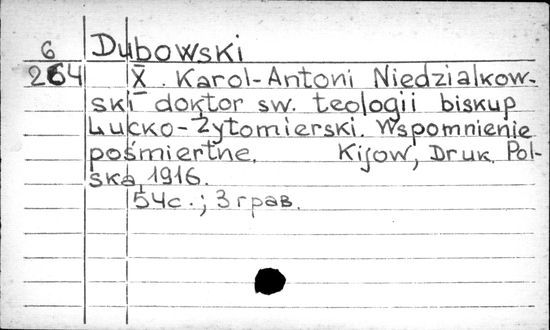 6 Dubowski
264 X. Karol-Antoni Niedzialkow-
ski doktor sw. teologii biskup
Łucko-Żytomierski. Wspomnienie
pośmiertne. Kijow, Druk. Pol-
ska, 1916.
54с.; 3 грав.